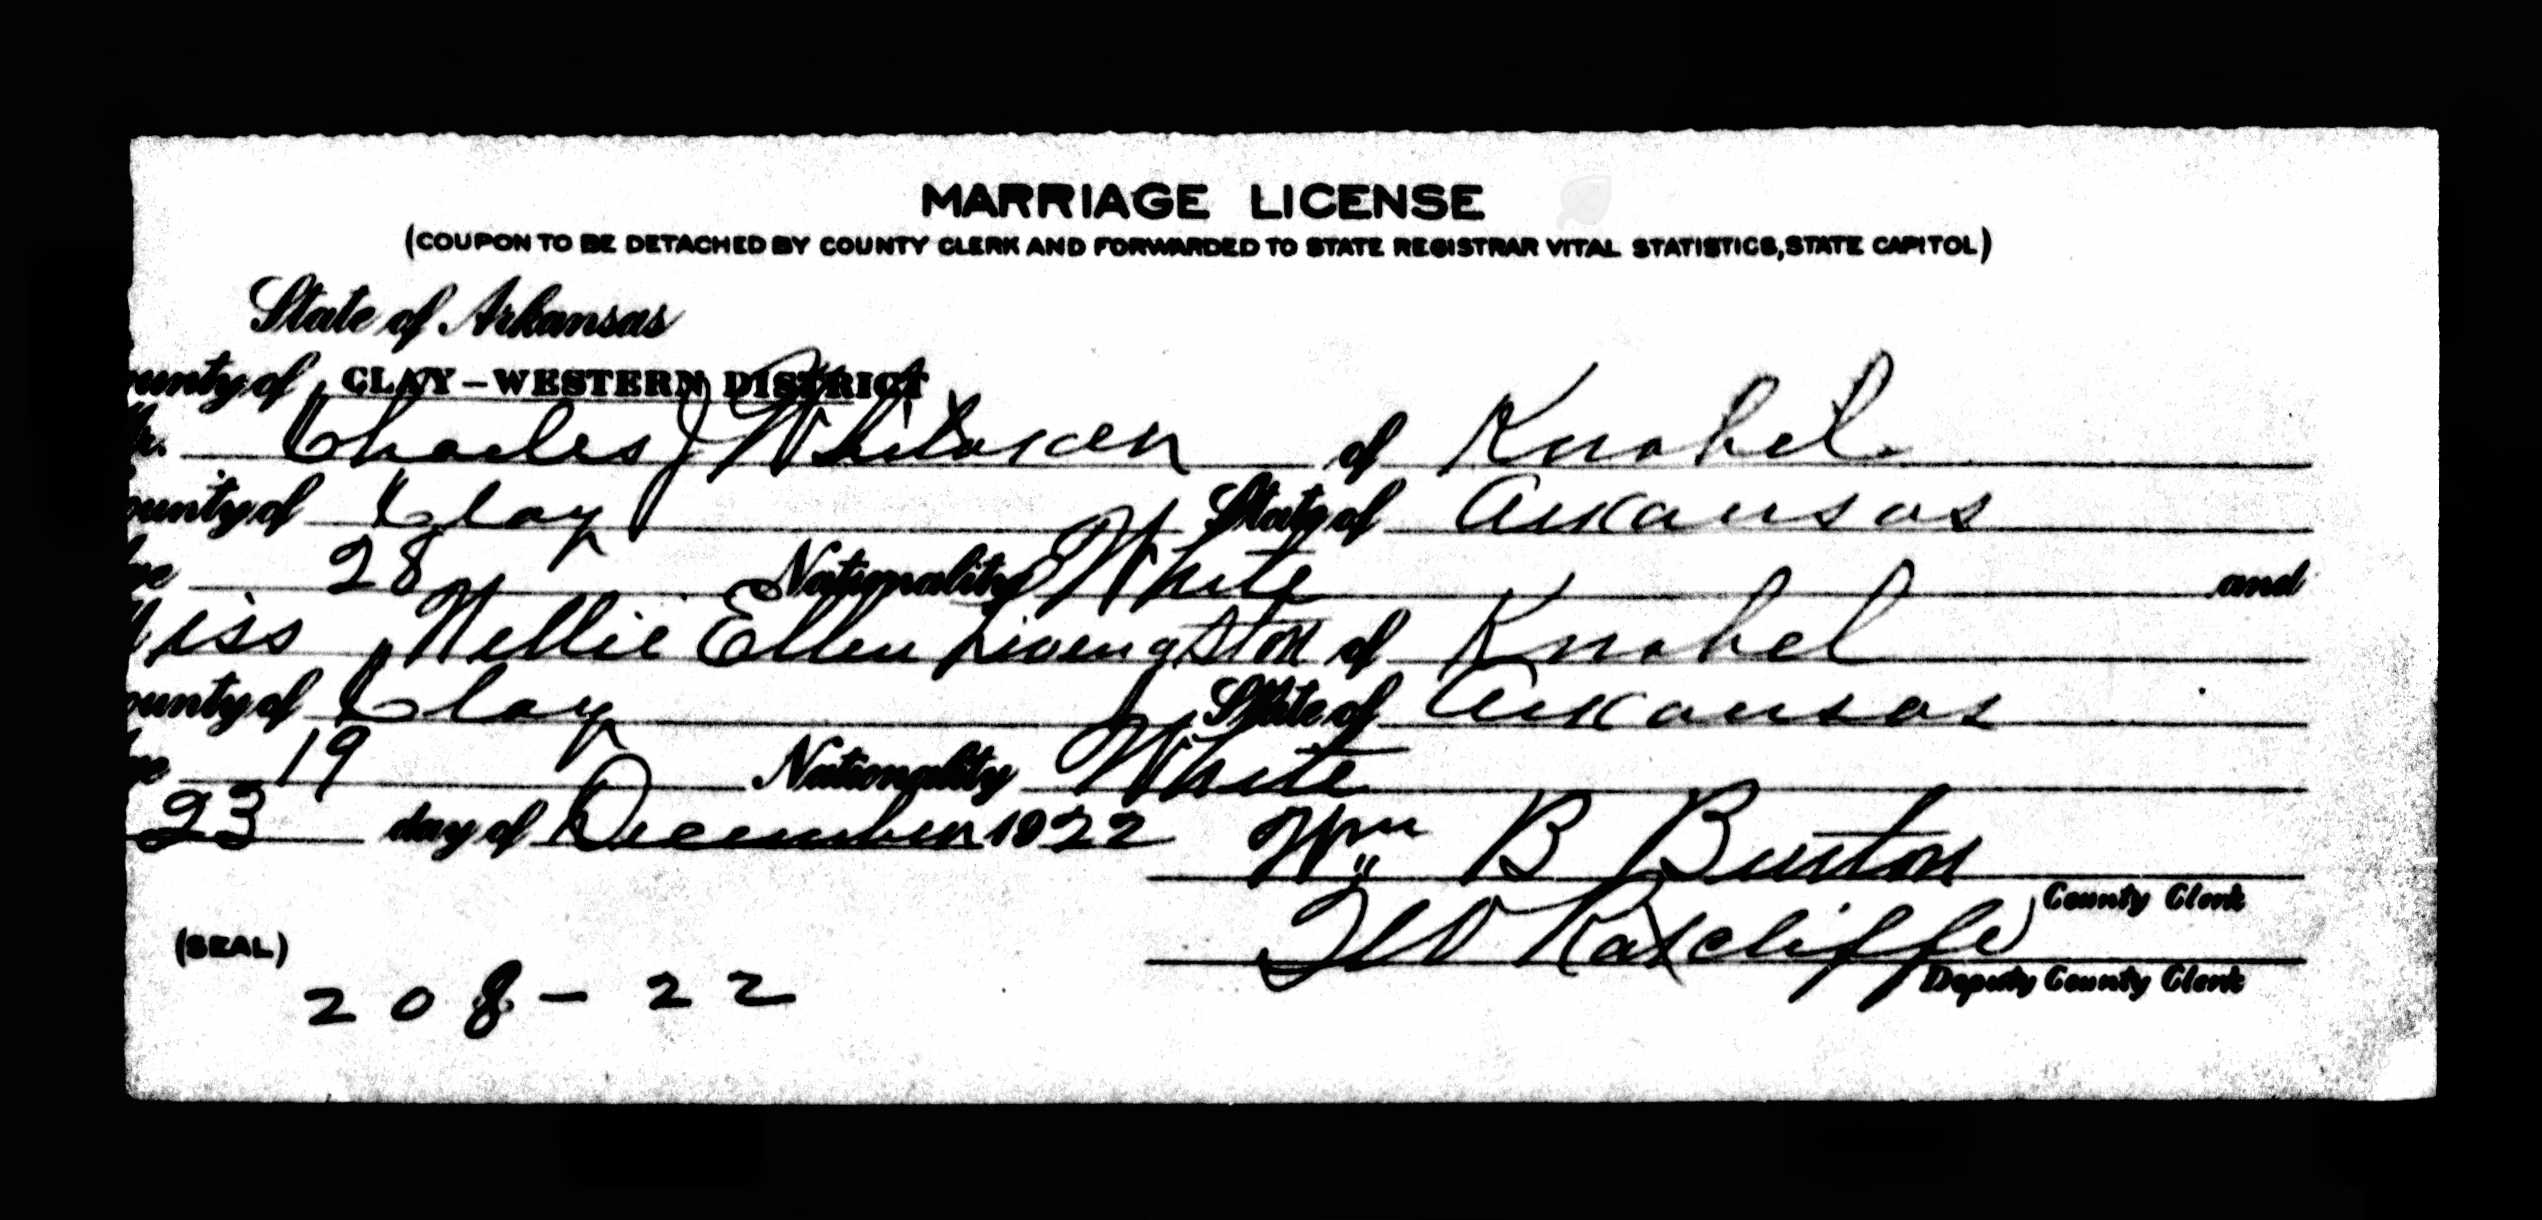 MARRIAGE LICENSE
(COUPON TO BE DETACHED BY COUNTY CLERK AND FORWARDED TO STATE REGISTRAR VITAL STATISTICS, STATE CAPITOL)
State of Arkansas
ounty of CLAY-WESTERN DISTRICT
Mr. Charles J of Knobel
ounty of Clay State of Arkansas
ge 28 Nationality White and
Miss Nellie Ellen Livengston of Knobel
ounty of Clay State of Arkansas
ge 19 Nationality White
23 day of December 1922 Wm B Burton
County Clerk
(SEAL) Ratcliffe
208-22 Deputy County Clerk